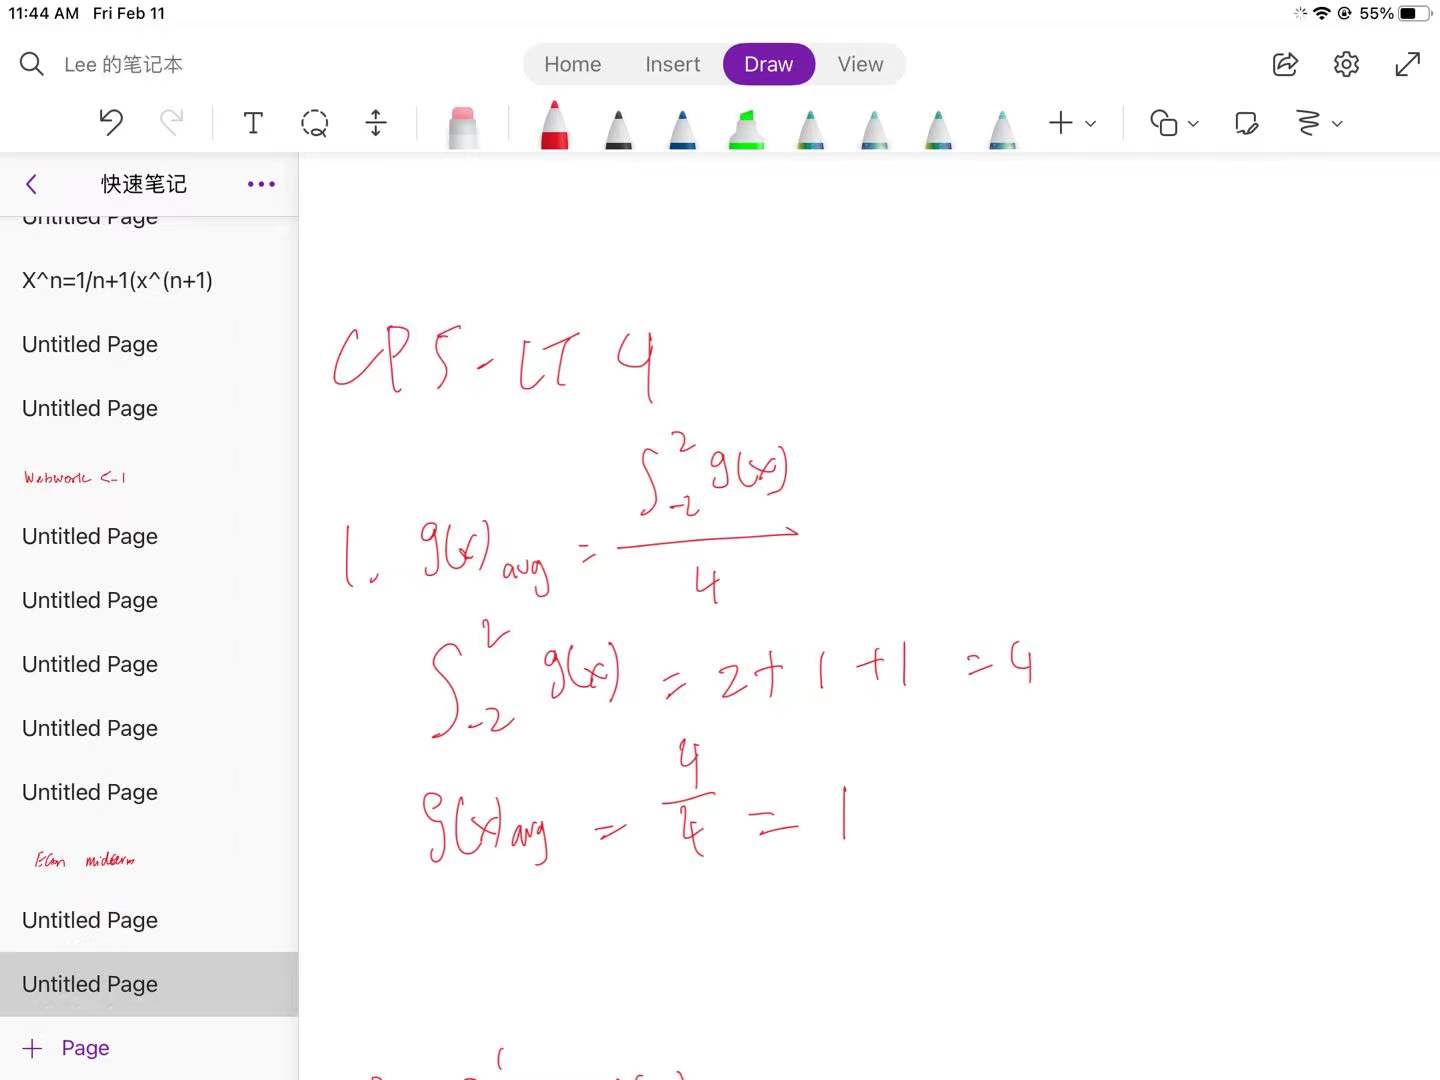 11:44 AM Fri Feb 11
55%
Lee 的笔记本
Home Insert Draw View
快速笔记
Untitled Page
X^n=1/n+1(x^(n+1)
Untitled Page
Untitled Page
Webwork <-1
Untitled Page
Untitled Page
Untitled Page
Untitled Page
Untitled Page
Econ midterm
Untitled Page
Untitled Page
+ Page
CP5-LT 4
1. g(x)avg = ∫_{-2}^{2} g(x) / 4
∫_{-2}^{2} g(x) = 2+1+1 = 4
g(x)avg = 4/4 = 1